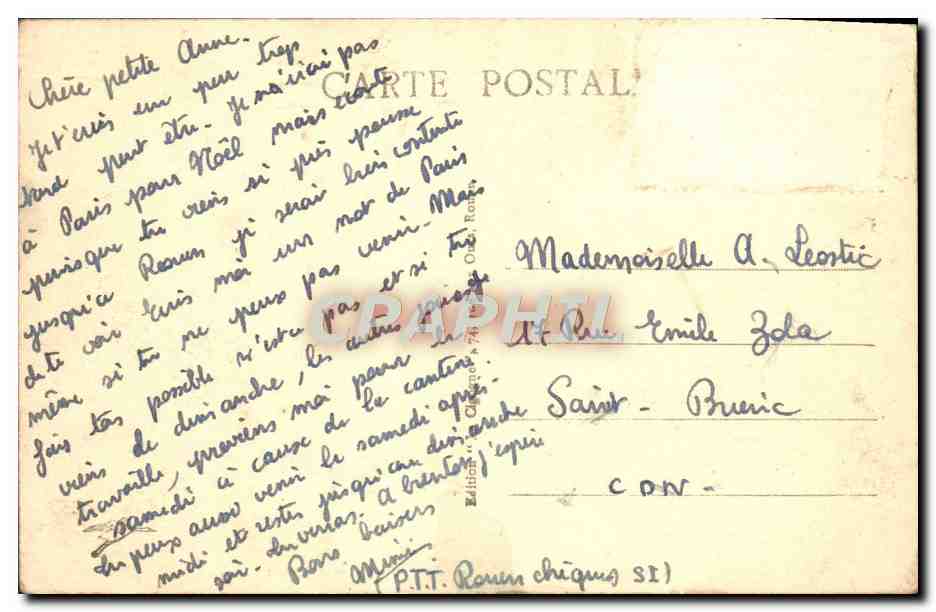 CARTE POSTAL
Chère petite Anne.
Je t'écris un peu trop
tard peut être. Je n'irai pas
à Paris pour Noël mais écoute
puisque tu viens si près pousse
jusqu'à Rouen je serai bien contente
de te voir Ecris moi un mot de Paris
même si tu ne peux pas venir. Mais
fais ton possible n'est ce pas et si tu
viens de dimanche, les autres jours je
travaille, préviens moi pour le
samedi à cause de la cantine
tu peux aussi venir le samedi après-
midi et rester jusqu'au dimanche
soir. Tu verras. A bientôt j'espère
Bons baisers
Mimi
(P.T.T. Rouen chèques SI)
Edition " La Cigogne " 74 Rouen
Mademoiselle A. Leostic
17 Rue Emile Zola
Saint-Brieuc
CDN-
CPAPHIL